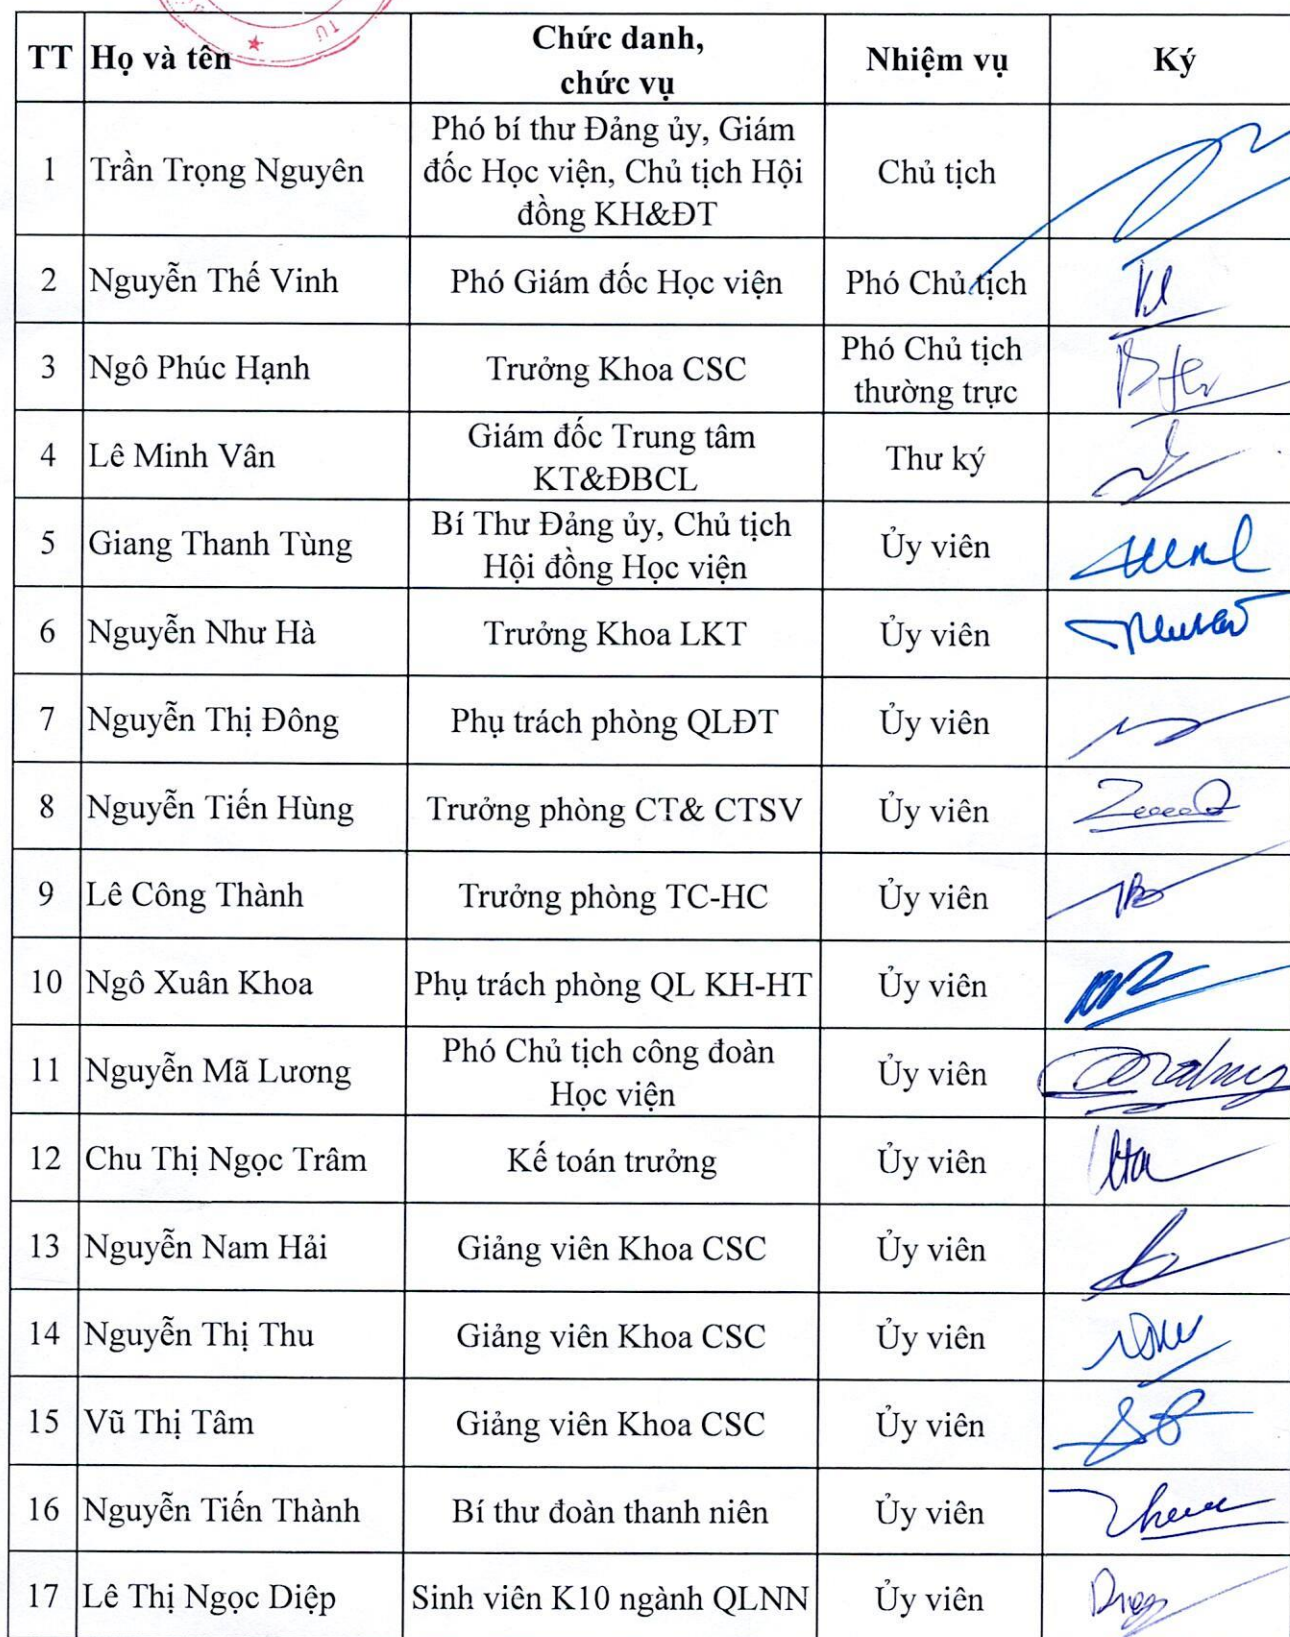 TT Họ và tên Chức danh, chức vụ Nhiệm vụ Ký
1 Trần Trọng Nguyên Phó bí thư Đảng ủy, Giám đốc Học viện, Chủ tịch Hội đồng KH&ĐT Chủ tịch
2 Nguyễn Thế Vinh Phó Giám đốc Học viện Phó Chủ tịch
3 Ngô Phúc Hạnh Trưởng Khoa CSC Phó Chủ tịch thường trực
4 Lê Minh Vân Giám đốc Trung tâm KT&ĐBCL Thư ký
5 Giang Thanh Tùng Bí Thư Đảng ủy, Chủ tịch Hội đồng Học viện Ủy viên
6 Nguyễn Như Hà Trưởng Khoa LKT Ủy viên
7 Nguyễn Thị Đông Phụ trách phòng QLĐT Ủy viên
8 Nguyễn Tiến Hùng Trưởng phòng CT& CTSV Ủy viên
9 Lê Công Thành Trưởng phòng TC-HC Ủy viên
10 Ngô Xuân Khoa Phụ trách phòng QL KH-HT Ủy viên
11 Nguyễn Mã Lương Phó Chủ tịch công đoàn Học viện Ủy viên
12 Chu Thị Ngọc Trâm Kế toán trưởng Ủy viên
13 Nguyễn Nam Hải Giảng viên Khoa CSC Ủy viên
14 Nguyễn Thị Thu Giảng viên Khoa CSC Ủy viên
15 Vũ Thị Tâm Giảng viên Khoa CSC Ủy viên
16 Nguyễn Tiến Thành Bí thư đoàn thanh niên Ủy viên
17 Lê Thị Ngọc Diệp Sinh viên K10 ngành QLNN Ủy viên